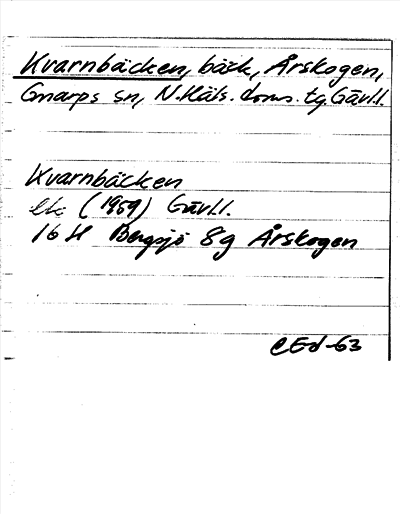 Kvarnbäcken, bäck, Årskogen,
Gnarps sn, N.Häls. doms. tg, Gävl.l.
Kvarnbäcken
ek (1959) Gävl.l.
16 H Bergsjö 8g Årskogen
CEd-63